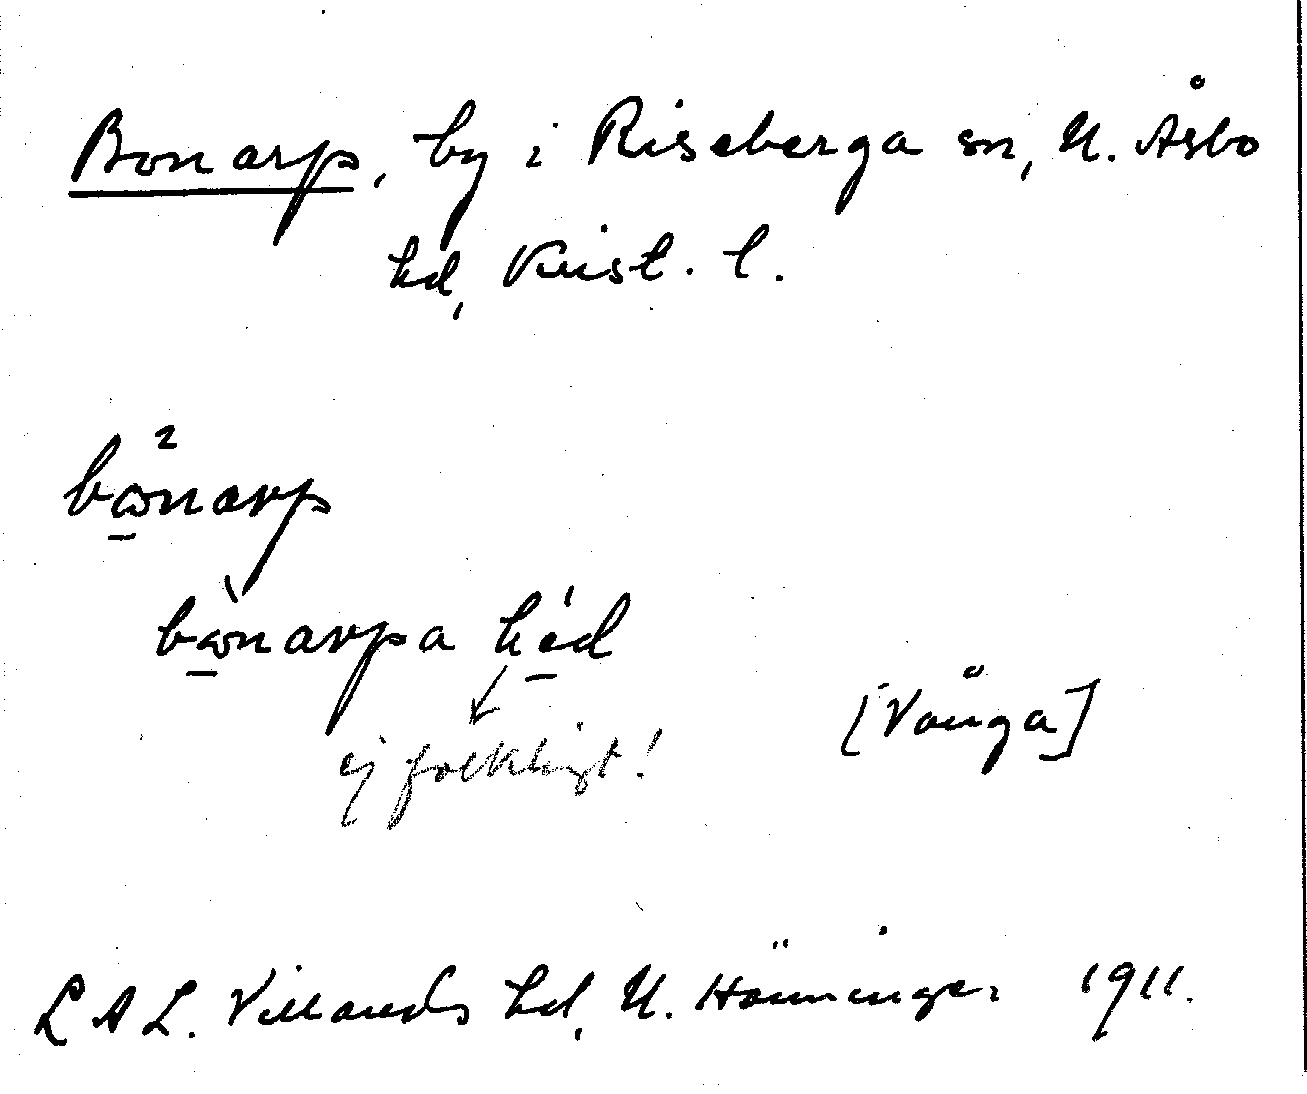 Bonarp, by i Riseberga sn, N. Åsbo
hd, Krist. l.
bω̱²narp
bὼ̱narpa hé̱d
ej folkligt!
[Vånga]
LAL. Villands hd, N. Hönninger 1911.